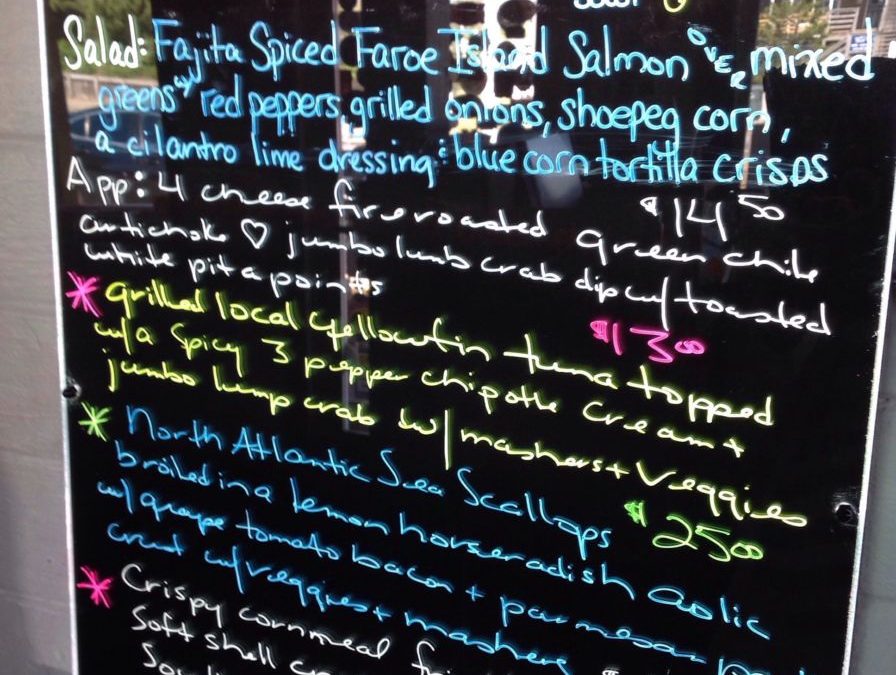 Salad: Fajita Spiced Faroe Island Salmon over mixed
greens w/ red peppers, grilled onions, shoepeg corn,
a cilantro lime dressing & blue corn tortilla crisps
$14 50
App: 4 cheese fire roasted green chile
artichoke ♡ jumbo lumb crab dip w/ toasted
white pita points
$13 00
* grilled local yellowfin tuna topped
w/a Spicy 3 pepper chipotle cream +
jumbo lump crab w/ mashers + Veggies
$25 00
* North Atlantic Sea Scallops
broiled in a lemon horseradish aolic
w/ grape tomato bacon + parmesan
crust w/ veggies + mashers
* Crispy cornmeal
Soft shell